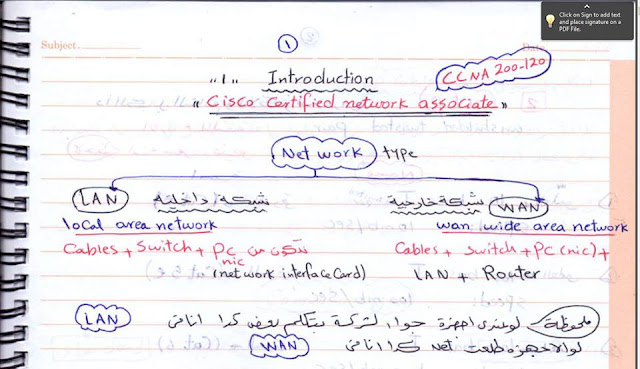 Click on Sign to add text and place signature on a PDF File.
Subject
Date
1
"1" Introduction
CCNA 200-120
"Cisco Certified network associate"
Network type
LAN شبكة داخلية
شبكة خارجية WAN
local area network
wan wide area network
Cables + Switch + PC تتكون من
nic
(network interface Card)
Cables + switch + PC (nic) +
LAN + Router
ملحوظة لو عندى اجهزة جوا لشركة بتتكلم بعض كدا انا فى LAN
لو الاجهزه طلعت net كدا انا فى WAN